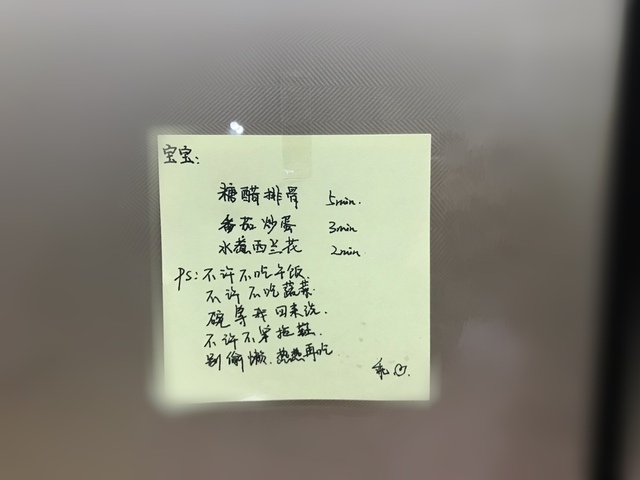 宝宝:
糖醋排骨 5min.
番茄炒蛋 3min
水煮西兰花 2min
PS:不许不吃午饭.
不许不吃蔬菜.
碗等我回来洗.
不许不穿拖鞋.
别偷懒.热热再吃
乖